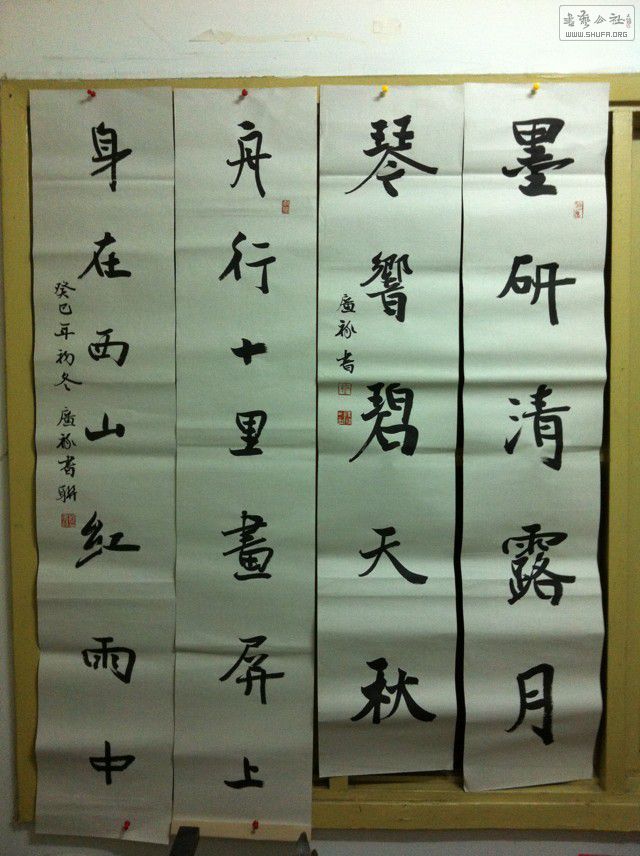 墨研清露月
琴響碧天秋
廣祿書
舟行十里畫屏上
身在西山紅雨中
癸巳年初冬
廣祿書聯
WWW.SHUFA.ORG